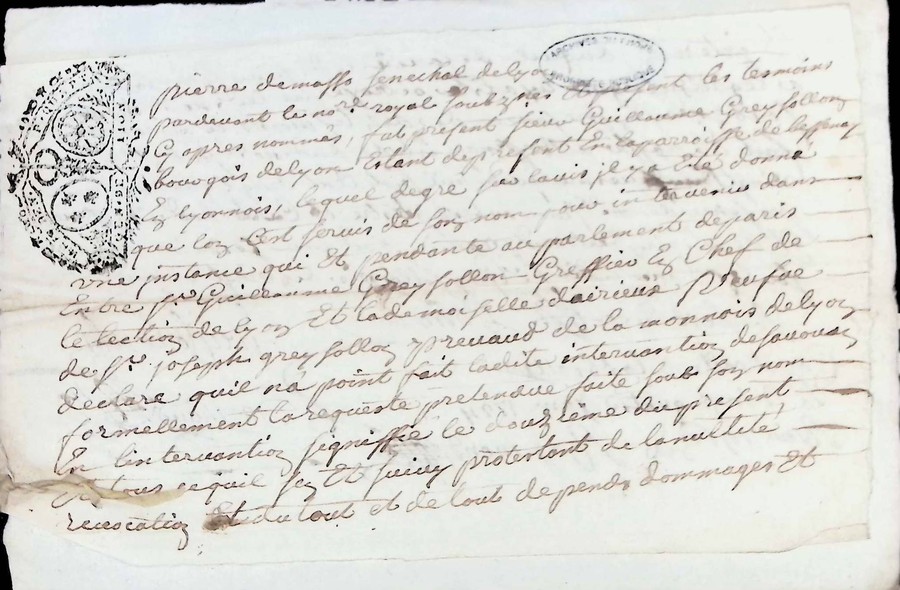 pierre de masso senechal de lyon
pardevant le nore royal soubz nes Et present les tesmoins
cy apres nommés, fut present sieur Guillaume Greysollon
bourgois de lyon Estant de present En la parroisse de
En lyonnois, lequel de gre sur lavis quil y a Esté donné
que lon cest servis de son nom pour intervenir dans
une instance qui Et pendante au parlement de paris
Entre sr Guillaume Greysollon Greffier En Chef de
lelection de lyon Et lademoiselle dairieux Veufue
de Sr. joseph greysollon prevaud de la monnois de lyon
declare quil na point fait ladite intervantion desavouan
formellement la requeste pretendue faite soub son nom
En lintervantion signiffie le douzieme du present
Et tous ce quil sen Et suivy protestant de la nullité
revocation Et du tout et de tout depends dommages Et